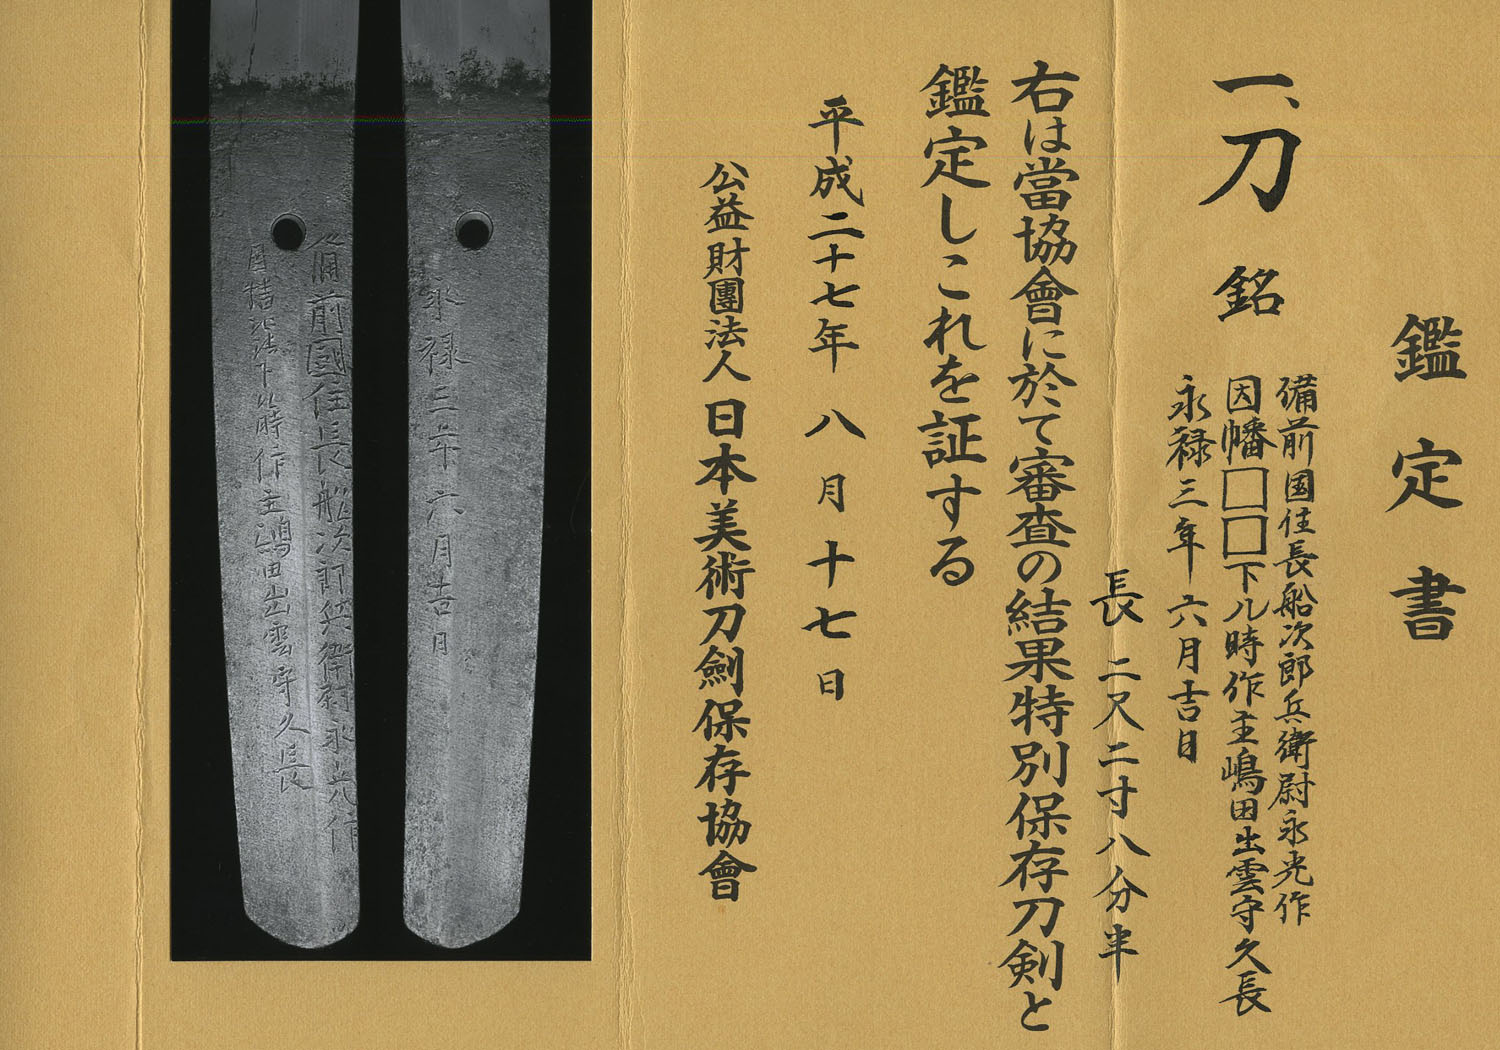 鑑定書
一、刀 銘
備前国住長船次郎兵衛尉永光作
因幡□□下ル時作主嶋田出雲守久長
永禄三年六月吉日
長 二尺二寸八分半
右は當協會に於て審査の結果特別保存刀剣と
鑑定しこれを証する
平成二十七年 八月十七日
公益財團法人 日本美術刀劍保存協會
永禄三年六月吉日
備前國住長船次郎兵衛尉永光作
下ル時作主嶋田出雲守久長